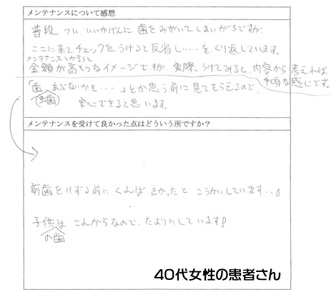 メンテナンスについて感想
普段、つい、いいかげんに歯をみがいてしまいがちですが
ここに来てチェックをうけると反省し‥‥をくり返しています。
メンテナンスとかきくと
金額が高そうなイメージですが、実際、うけてみると、内容から考えれば
な感じです。
「歯、あぶないかも‥‥」とか思う前に見てもらえるので、
安心できると思います。
メンテナンスを受けて良かった点はどういう所ですか?
前歯を
こうかいしています‥
子供は これからなので、たよりにしています!
の歯
40代女性の患者さん